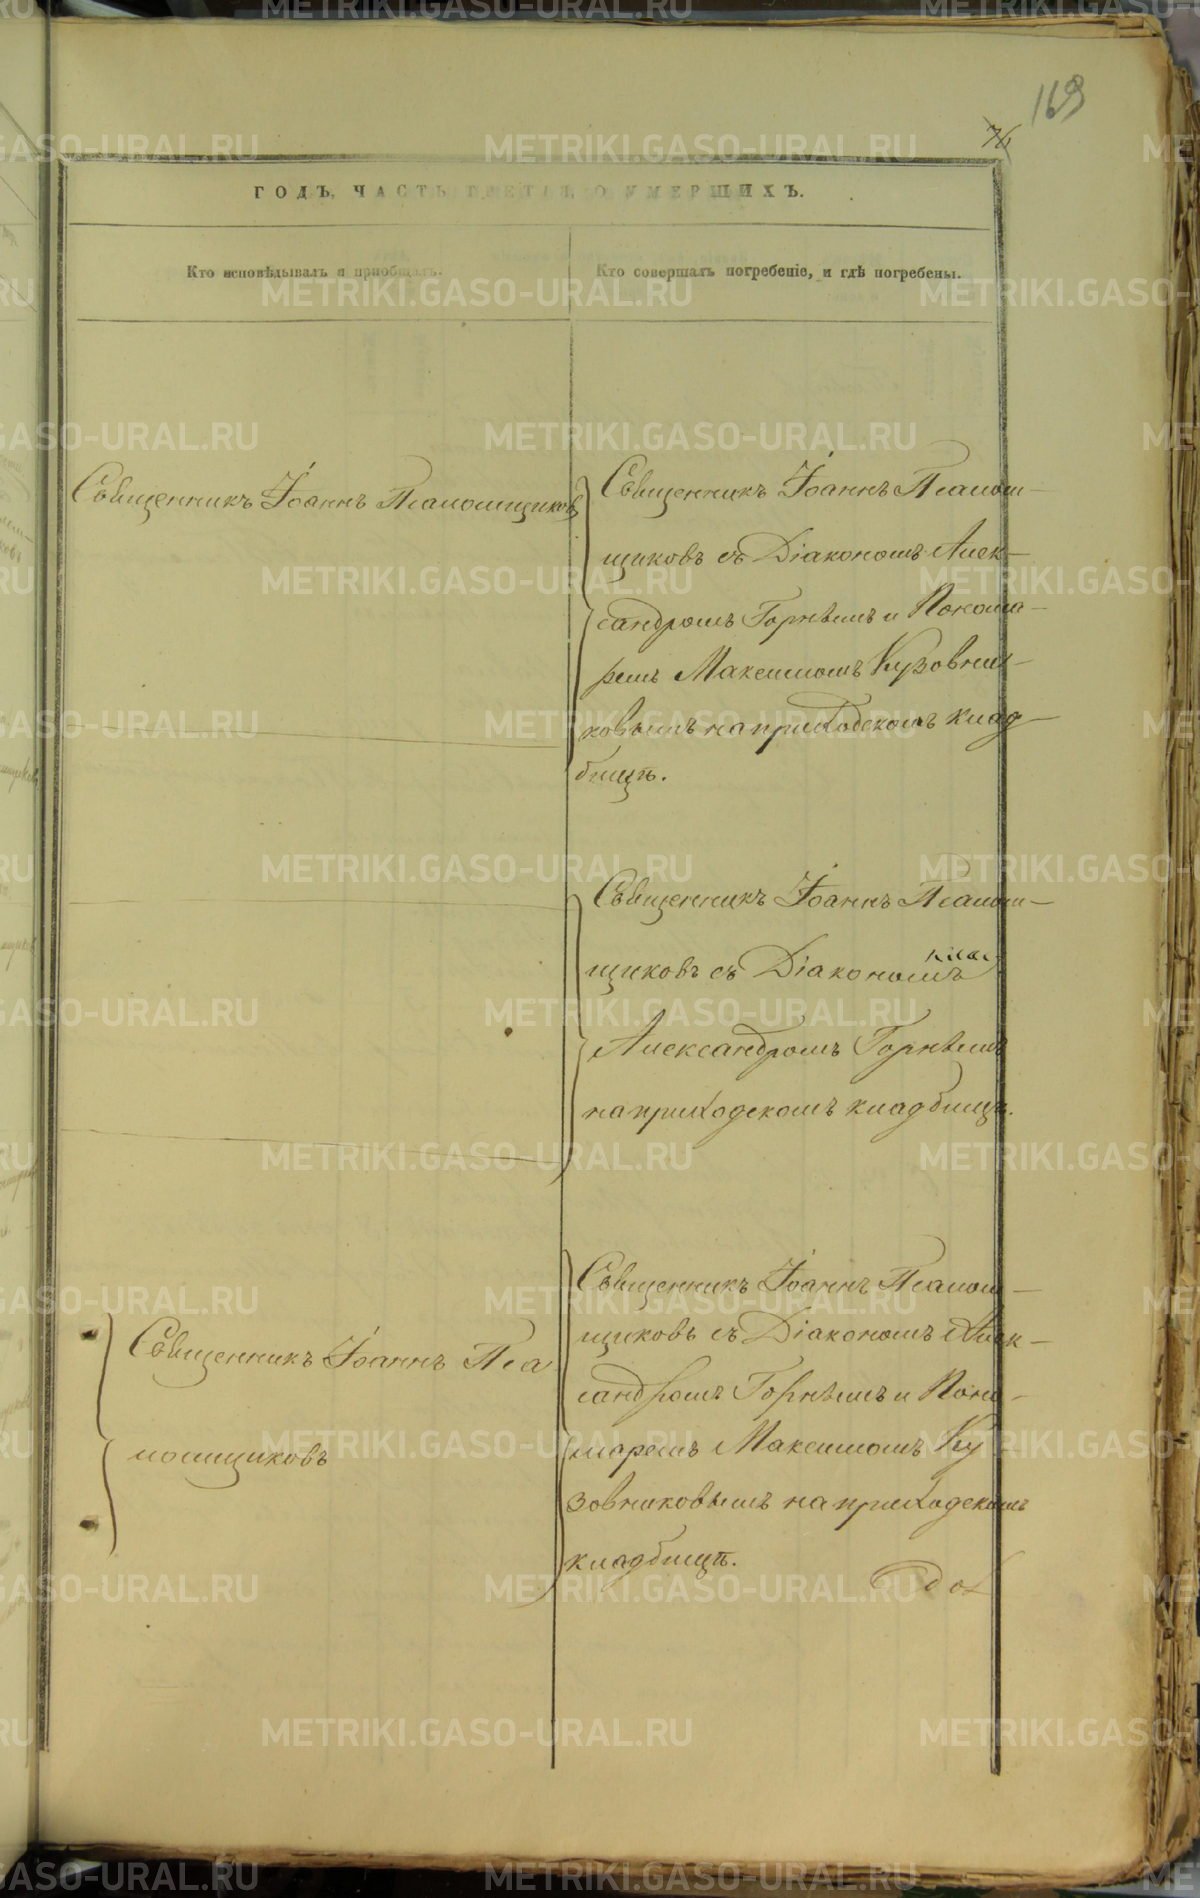 169
76
ГОДЪ, ЧАСТЬ ТРЕТІЯ, О УМЕРШИХЪ.
Кто исповѣдывалъ и приобщалъ.
Кто совершалъ погребеніе, и гдѣ погребены.
Священникъ Іоаннъ Псаломщиковъ
Священникъ Іоаннъ Псалом-
щиковъ съ Діакономъ Алек-
сандромъ Горнымъ и Понома-
ремъ Максимомъ Кузовни-
ковымъ на приходскомъ клад-
бищѣ.
Священникъ Іоаннъ Псалом-
щиковъ съ Діакономъ
Александромъ Горнымъ
на приходскомъ кладбищѣ.
Священникъ Іоаннъ Пса
ломщиковъ
Священникъ Іоаннъ Псалом-
щиковъ съ Діакономъ Алек-
сандромъ Горнымъ и Поно-
маремъ Максимомъ Ку
зовниковымъ на приходскомъ
кладбищѣ.
METRIKI.GASO-URAL.RU